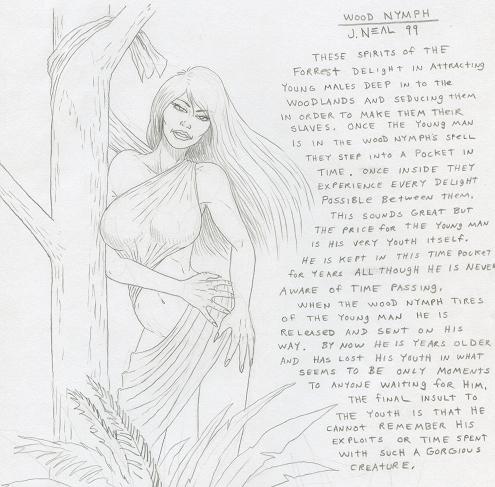 WOOD NYMPH
J. NEAL 99
THESE SPIRITS OF THE
FORREST DELIGHT IN ATTRACTING
YOUNG MALES DEEP IN TO THE
WOODLANDS AND SEDUCING THEM
IN ORDER TO MAKE THEM THEIR
SLAVES. ONCE THE YOUNG MAN
IS IN THE WOOD NYMPH'S SPELL
THEY STEP INTO A POCKET IN
TIME. ONCE INSIDE THEY
EXPERIENCE EVERY DELIGHT
POSSIBLE BETWEEN THEM.
THIS SOUNDS GREAT BUT
THE PRICE FOR THE YOUNG MAN
IS HIS VERY YOUTH ITSELF.
HE IS KEPT IN THIS TIME POCKET
FOR YEARS ALL THOUGH HE IS NEVER
AWARE OF TIME PASSING.
WHEN THE WOOD NYMPH TIRES
OF THE YOUNG MAN HE IS
RELEASED AND SENT ON HIS
WAY. BY NOW HE IS YEARS OLDER
AND HAS LOST HIS YOUTH IN WHAT
SEEMS TO BE ONLY MOMENTS
TO ANYONE WAITING FOR HIM.
THE FINAL INSULT TO
THE YOUTH IS THAT HE
CANNOT REMEMBER HIS
EXPLOITS OR TIME SPENT
WITH SUCH A GORGIOUS
CREATURE.